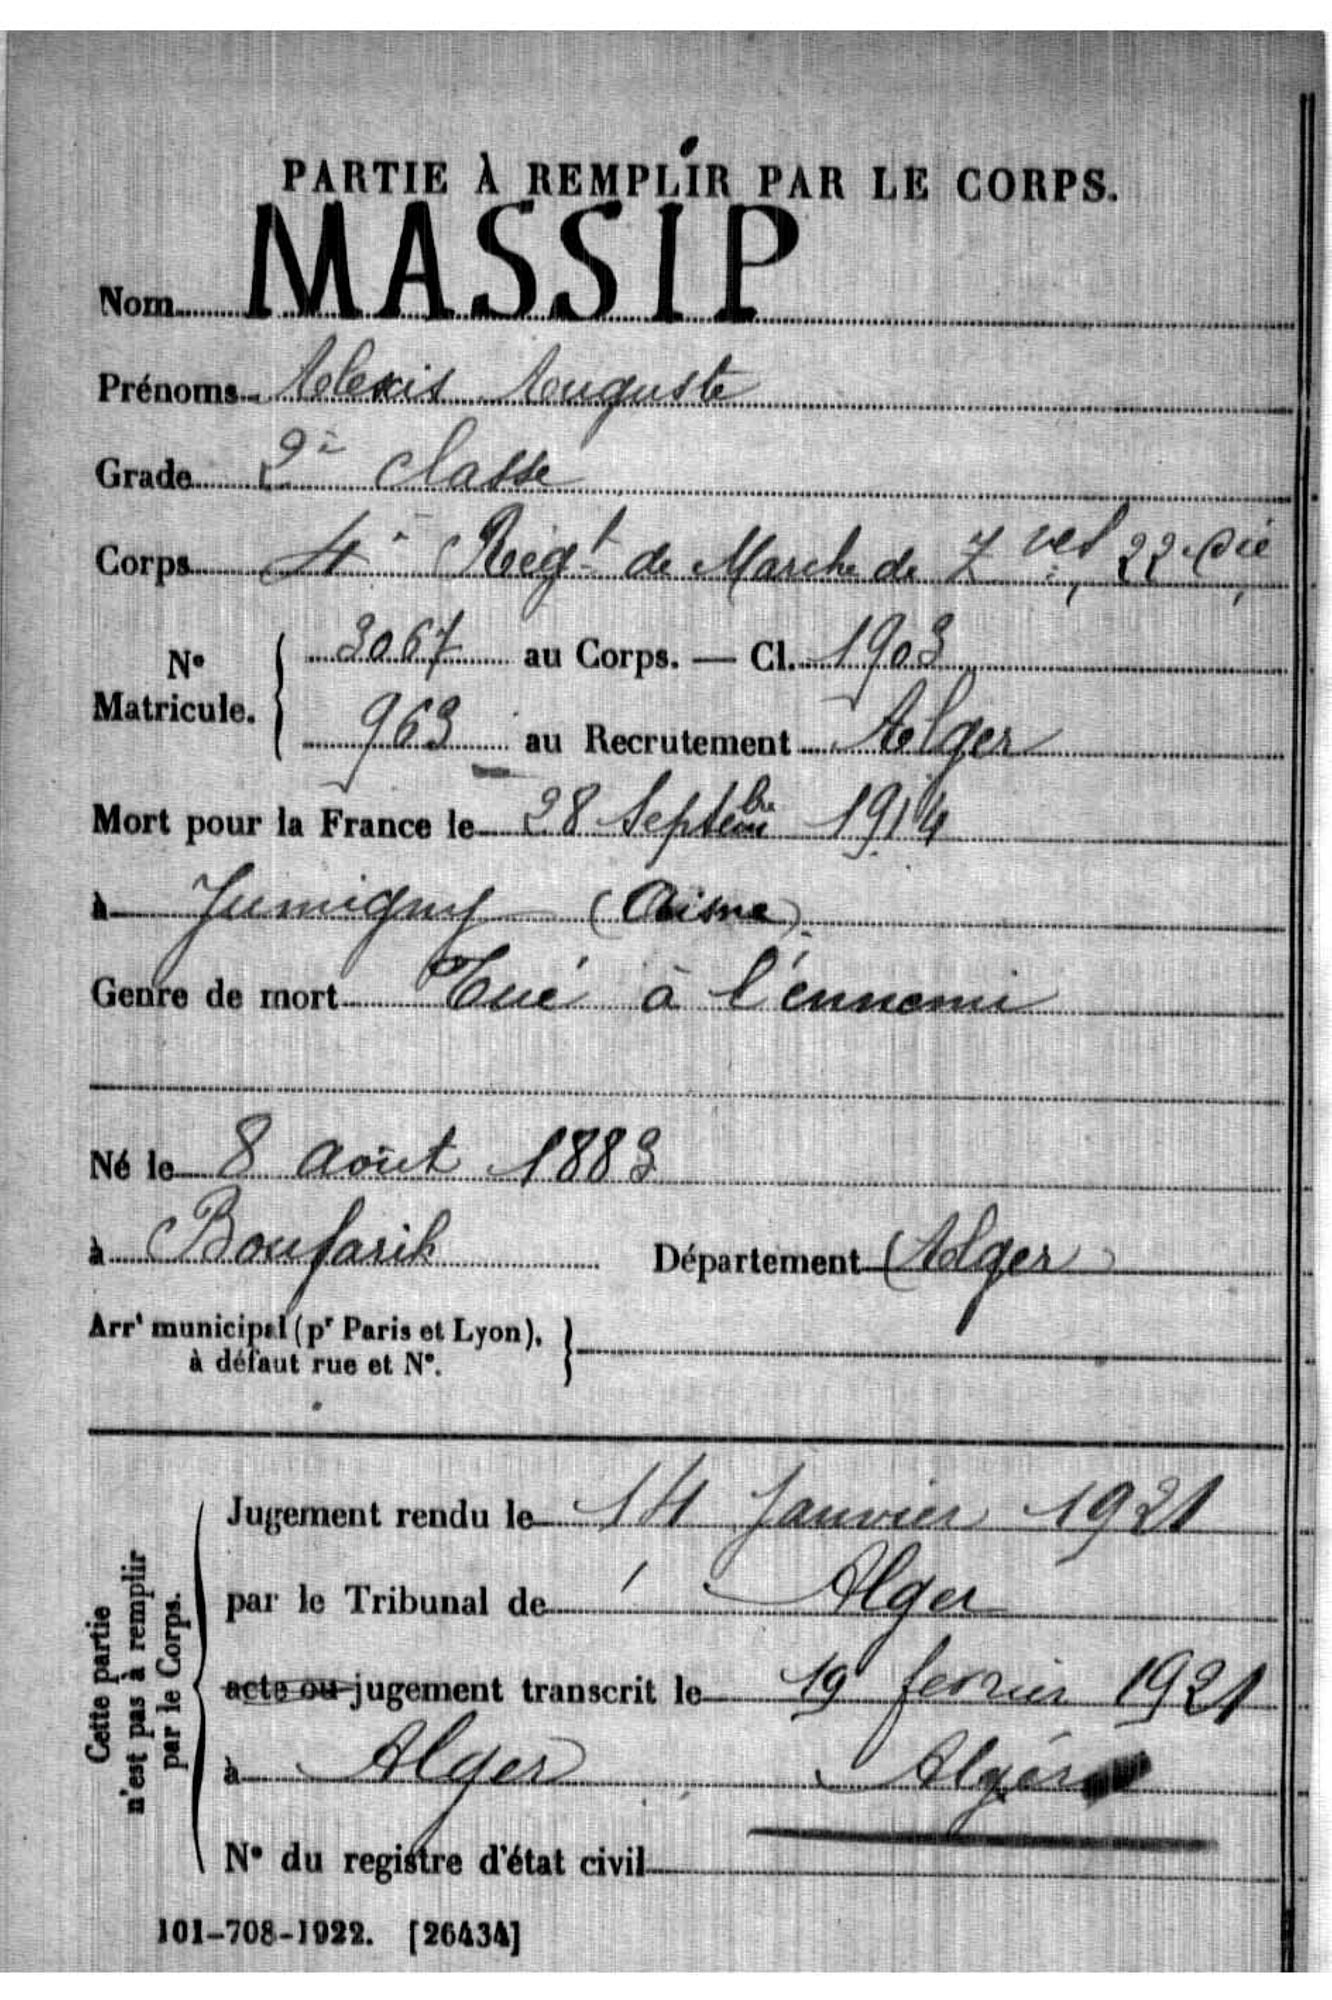 PARTIE À REMPLIR PAR LE CORPS.
Nom MASSIP
Prénoms Alexis Auguste
Grade 2è classe
Corps 4è Régt de Marche de Zves, 22e Cie
N° Matricule. { 3067 au Corps. — Cl. 1903
963 au Recrutement Alger
Mort pour la France le 28 Septembre 1914
à Jumigny (Aisne)
Genre de mort Tué à l'ennemi
Né le 8 Août 1883
à Boufarik Département Alger
Arrt municipal (pr Paris et Lyon), à défaut rue et N°. }
Cette partie n'est pas à remplir par le Corps.
Jugement rendu le 14 Janvier 1921
par le Tribunal de Alger
acte ou jugement transcrit le 19 fevrier 1921
à Alger Algérie
N° du registre d'état civil
101-708-1922. [26434]